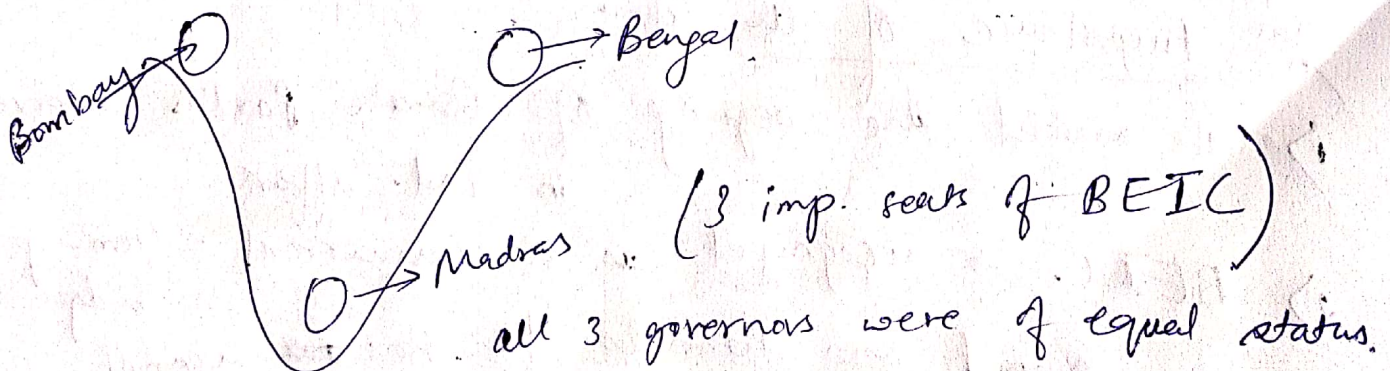 Bombay
Bengal.
Madras
(3 imp. seats of BEIC)
all 3 governors were of equal status.